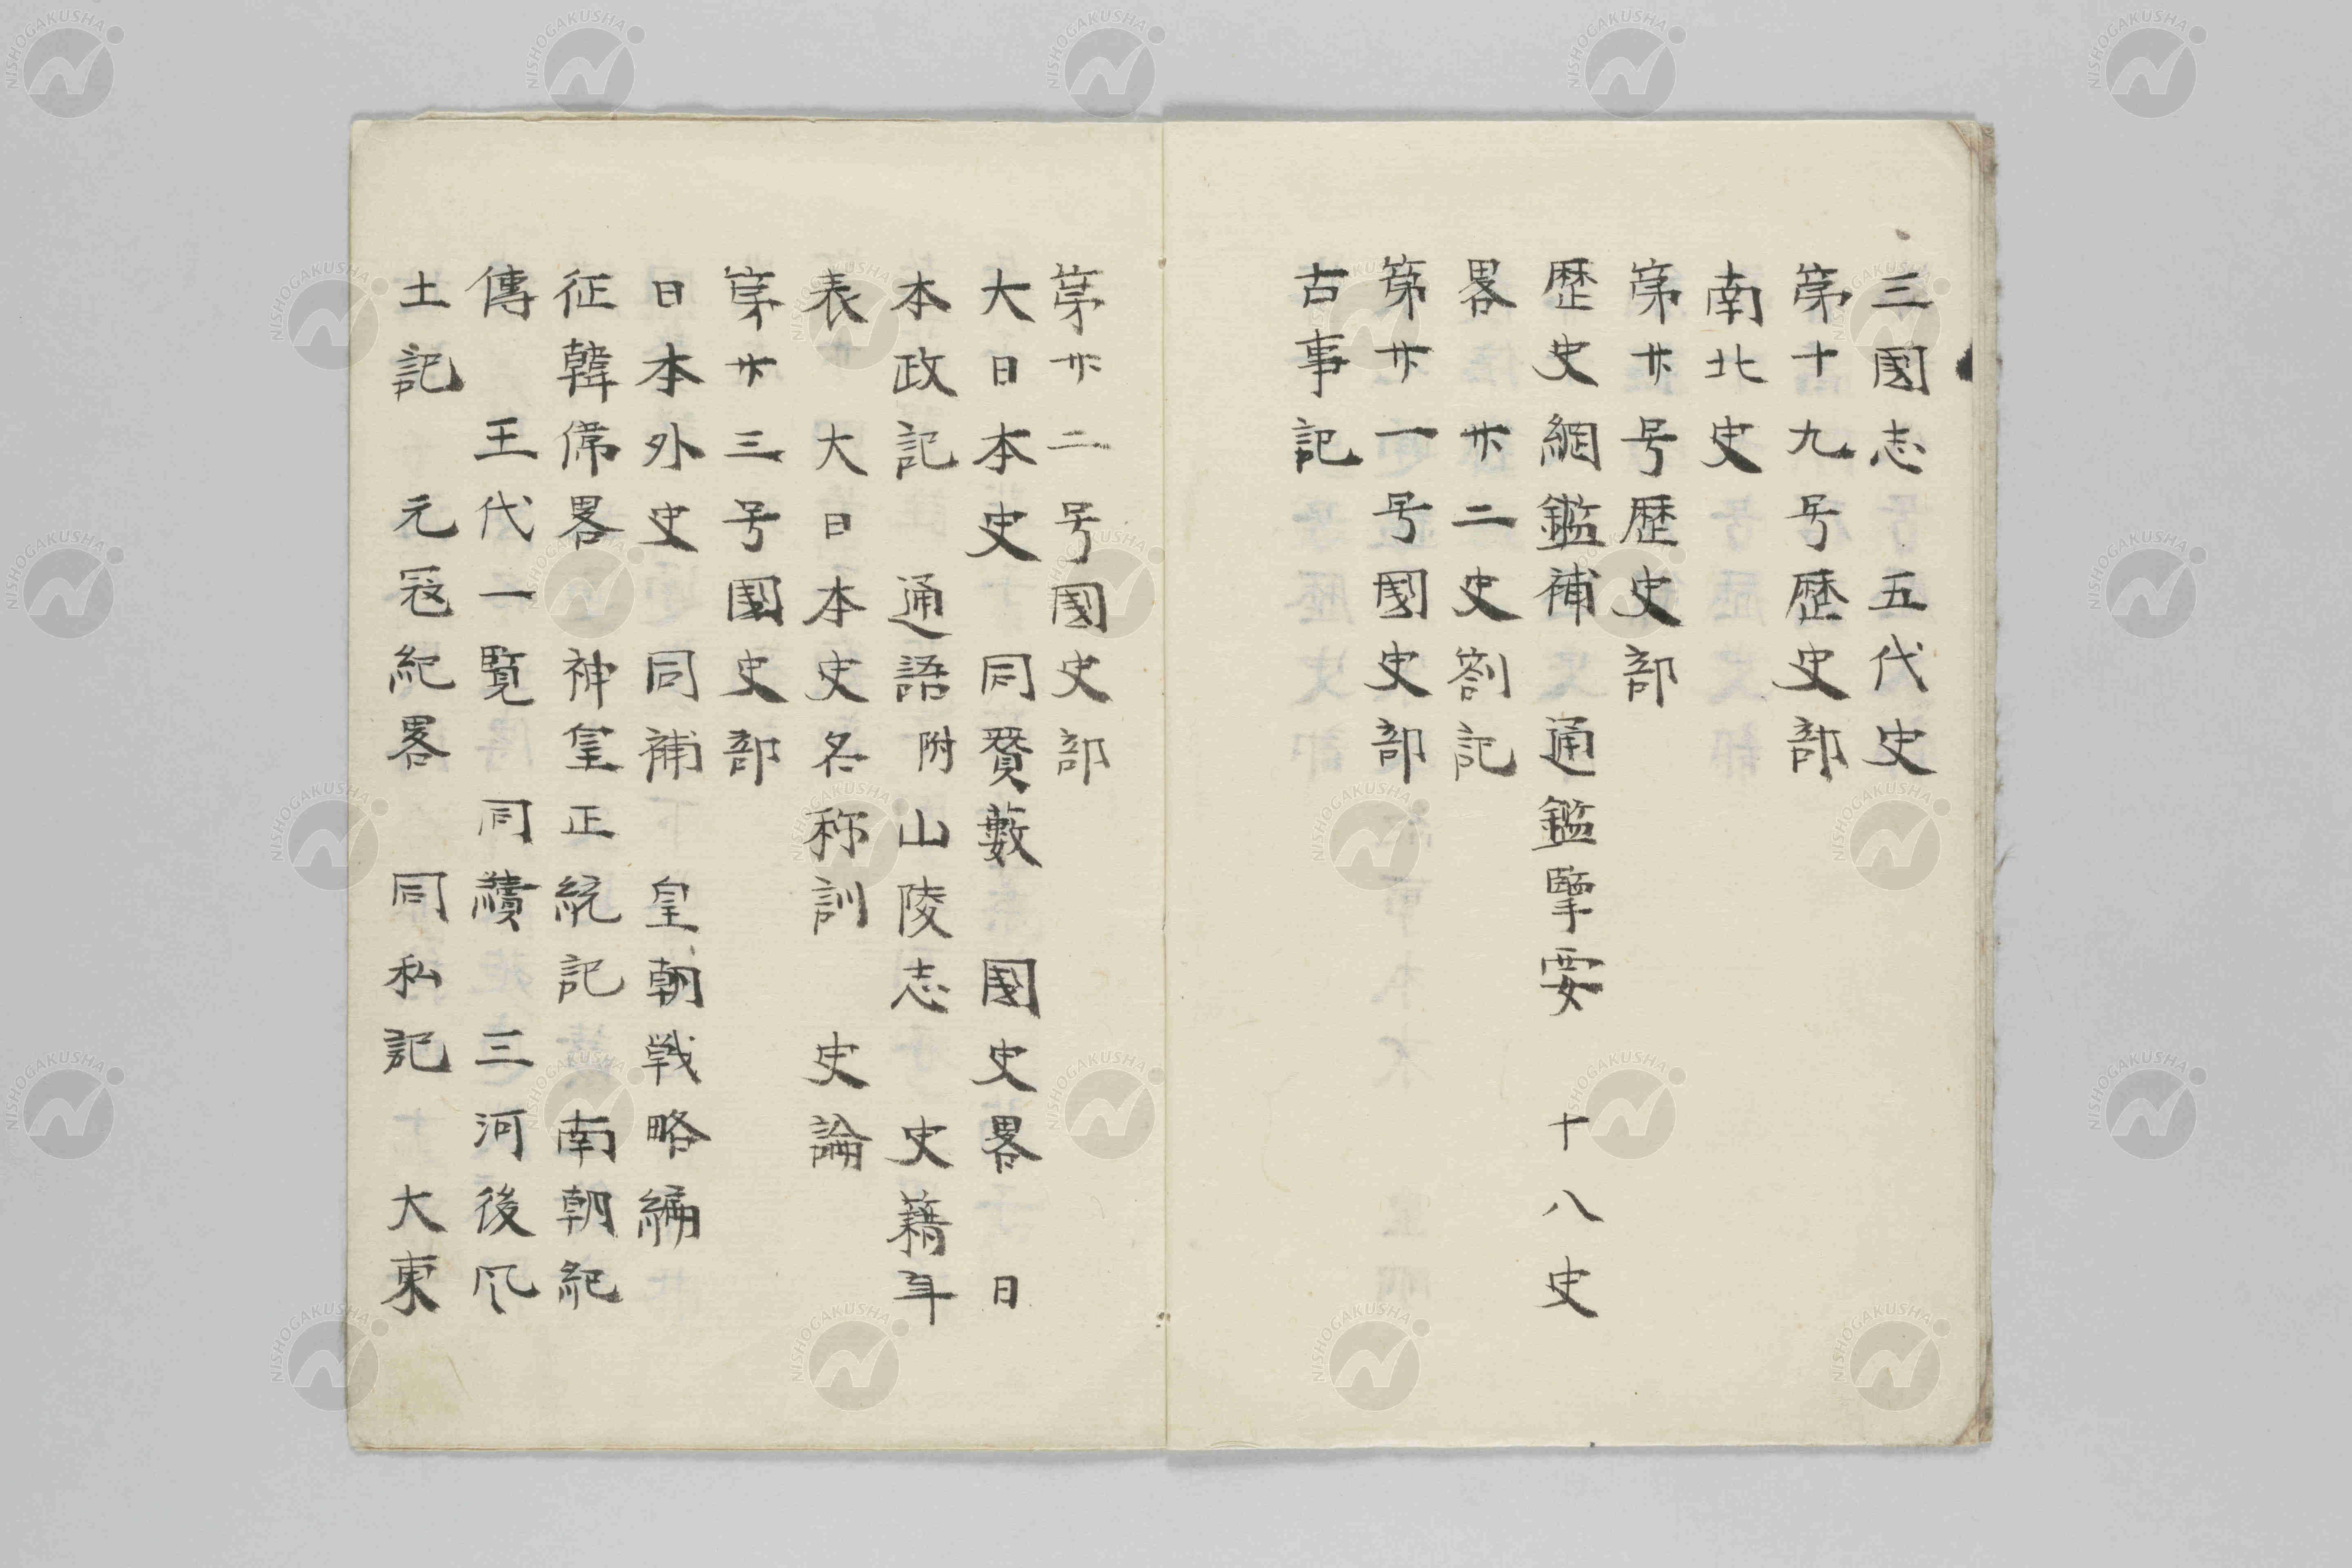 三國志　五代史
第十九号歴史部
南北史
第廿号歴史部
歴史綱鑑補　通鑑擥要　十八史
畧　廿二史劄記
第廿一号國史部
古事記
第廿二号國史部
大日本史　同賛藪　國史畧　日
本政記　通語附山陵志　史籍年
表　大日本史名称訓　史論
第廿三号國史部
日本外史　同補　皇朝戦略編
征韓偉畧　神皇正統記　南朝紀
傳　王代一覧　同續　三河後风
土記　元寇紀畧　同私記　大東
NISHOGAKUSHA